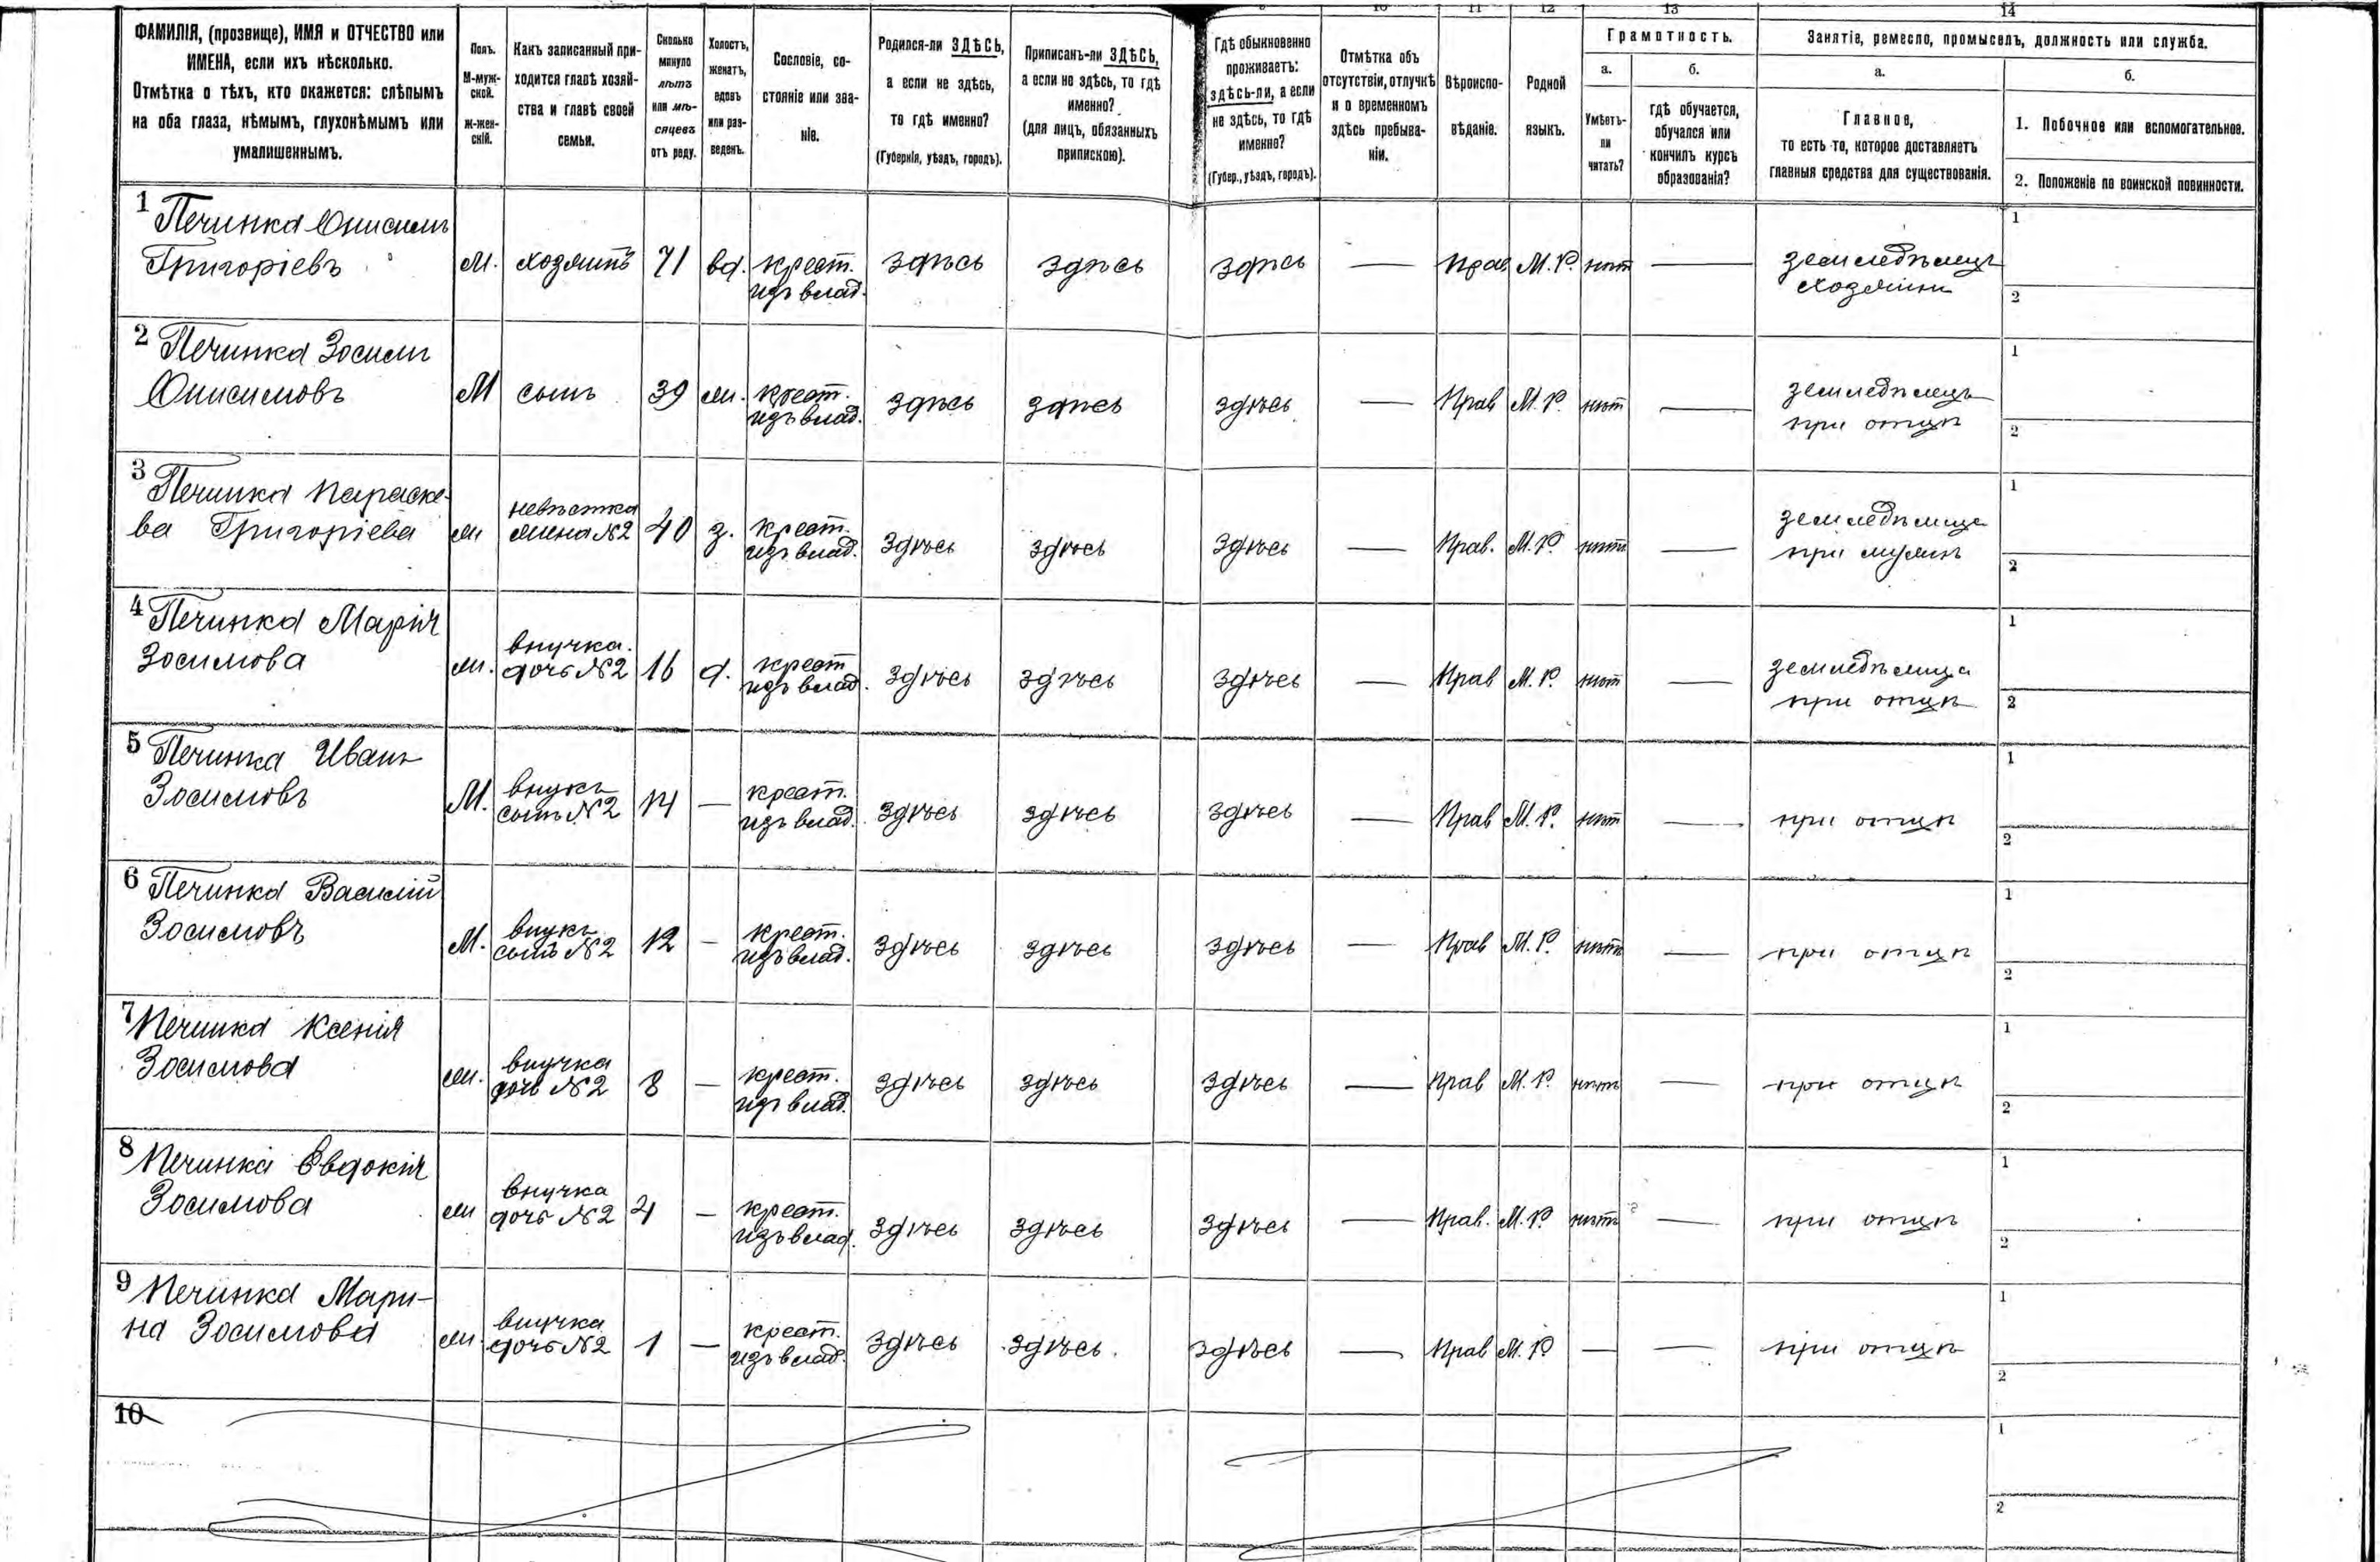 10 11 12 13 14
ФАМИЛІЯ, (прозвище), ИМЯ и ОТЧЕСТВО или
ИМЕНА, если ихъ нѣсколько.
Отмѣтка о тѣхъ, кто окажется: слѣпымъ
на оба глаза, нѣмымъ, глухонѣмымъ или
умалишеннымъ.
Полъ.
М-муж-
ской.
Ж-жен-
скій.
Какъ записанный при-
ходится главѣ хозяй-
ства и главѣ своей
семьи.
Сколько
минуло
лѣтъ
или мѣ-
сяцевъ
отъ роду.
Холостъ,
женатъ,
вдовъ
или раз-
веденъ.
Сословіе, со-
стояніе или зва-
ніе.
Родился-ли ЗДѢСЬ,
а если не здѣсь,
то гдѣ именно?
(Губернія, уѣздъ, городъ).
Приписанъ-ли ЗДѢСЬ,
а если не здѣсь, то гдѣ
именно?
(для лицъ, обязанныхъ
припискою).
Гдѣ обыкновенно
проживаетъ:
здѣсь-ли, а если
не здѣсь, то гдѣ
именно?
(Губер., уѣздъ, городъ).
Отмѣтка объ
отсутствіи, отлучкѣ
и о временномъ
здѣсь пребыва-
ніи.
Вѣроиспо-
вѣданіе.
Родной
языкъ.
Грамотность.
а.
Умѣетъ-
ли
читать?
б.
гдѣ обучается,
обучался или
кончилъ курсъ
образованія?
Занятіе, ремесло, промыселъ, должность или служба.
а.
Главное,
то есть то, которое доставляетъ
главныя средства для существованія.
б.
1. Побочное или вспомогательное.
2. Положеніе по воинской повинности.
1 Печинка Онисимъ
Григоріевъ
М. хозяинъ 71 вд. крест.
изъ влад.
здѣсь здѣсь здѣсь — Прав М.Р. нѣт —
земледѣлецъ
хозяинъ
1
2
2 Печинка Зосимъ
Онисимовъ
М сынъ 39 ж. крест.
изъ влад.
здѣсь здѣсь здѣсь — Прав М.Р. нѣт —
земледѣлецъ
при отцѣ
1
2
3 Печинка Параске-
ва Григоріева
ж невѣстка
жена №2 40 з. крест.
изъ влад.
здѣсь здѣсь здѣсь — Прав. М.Р. нѣтъ —
земледѣлица
при мужѣ
1
2
4 Печинка Марія
Зосимова
ж. внучка.
дочь №2 16 д. крест
изъ влад.
здѣсь здѣсь здѣсь — Прав М.Р. нѣт —
земледѣлица
при отцѣ
1
2
5 Печинка Иванъ
Зосимовъ
М. внукъ
сынъ №2 14 — крест.
изъ влад.
здѣсь здѣсь здѣсь — Прав М.Р. нѣт —
при отцѣ
1
2
6 Печинка Василій
Зосимовъ
М. внукъ
сынъ №2 12 — крест.
изъ влад.
здѣсь здѣсь здѣсь — Прав М.Р. нѣтъ —
при отцѣ
1
2
7 Печинка Ксенія
Зосимова
ж. внучка
дочь №2 8 — крест.
изъ влад.
здѣсь здѣсь здѣсь — Прав М.Р. нѣтъ —
при отцѣ
1
2
8 Печинка Евдокія
Зосимова
ж внучка
дочь №2 4 — крест.
изъ влад.
здѣсь здѣсь здѣсь — Прав. М.Р. нѣтъ —
при отцѣ
1
2
9 Печинка Мари-
на Зосимова
ж. внучка
дочь №2 1 — крест.
изъ влад.
здѣсь здѣсь. здѣсь — Прав М.Р — —
при отцѣ
1
2
10
1
2